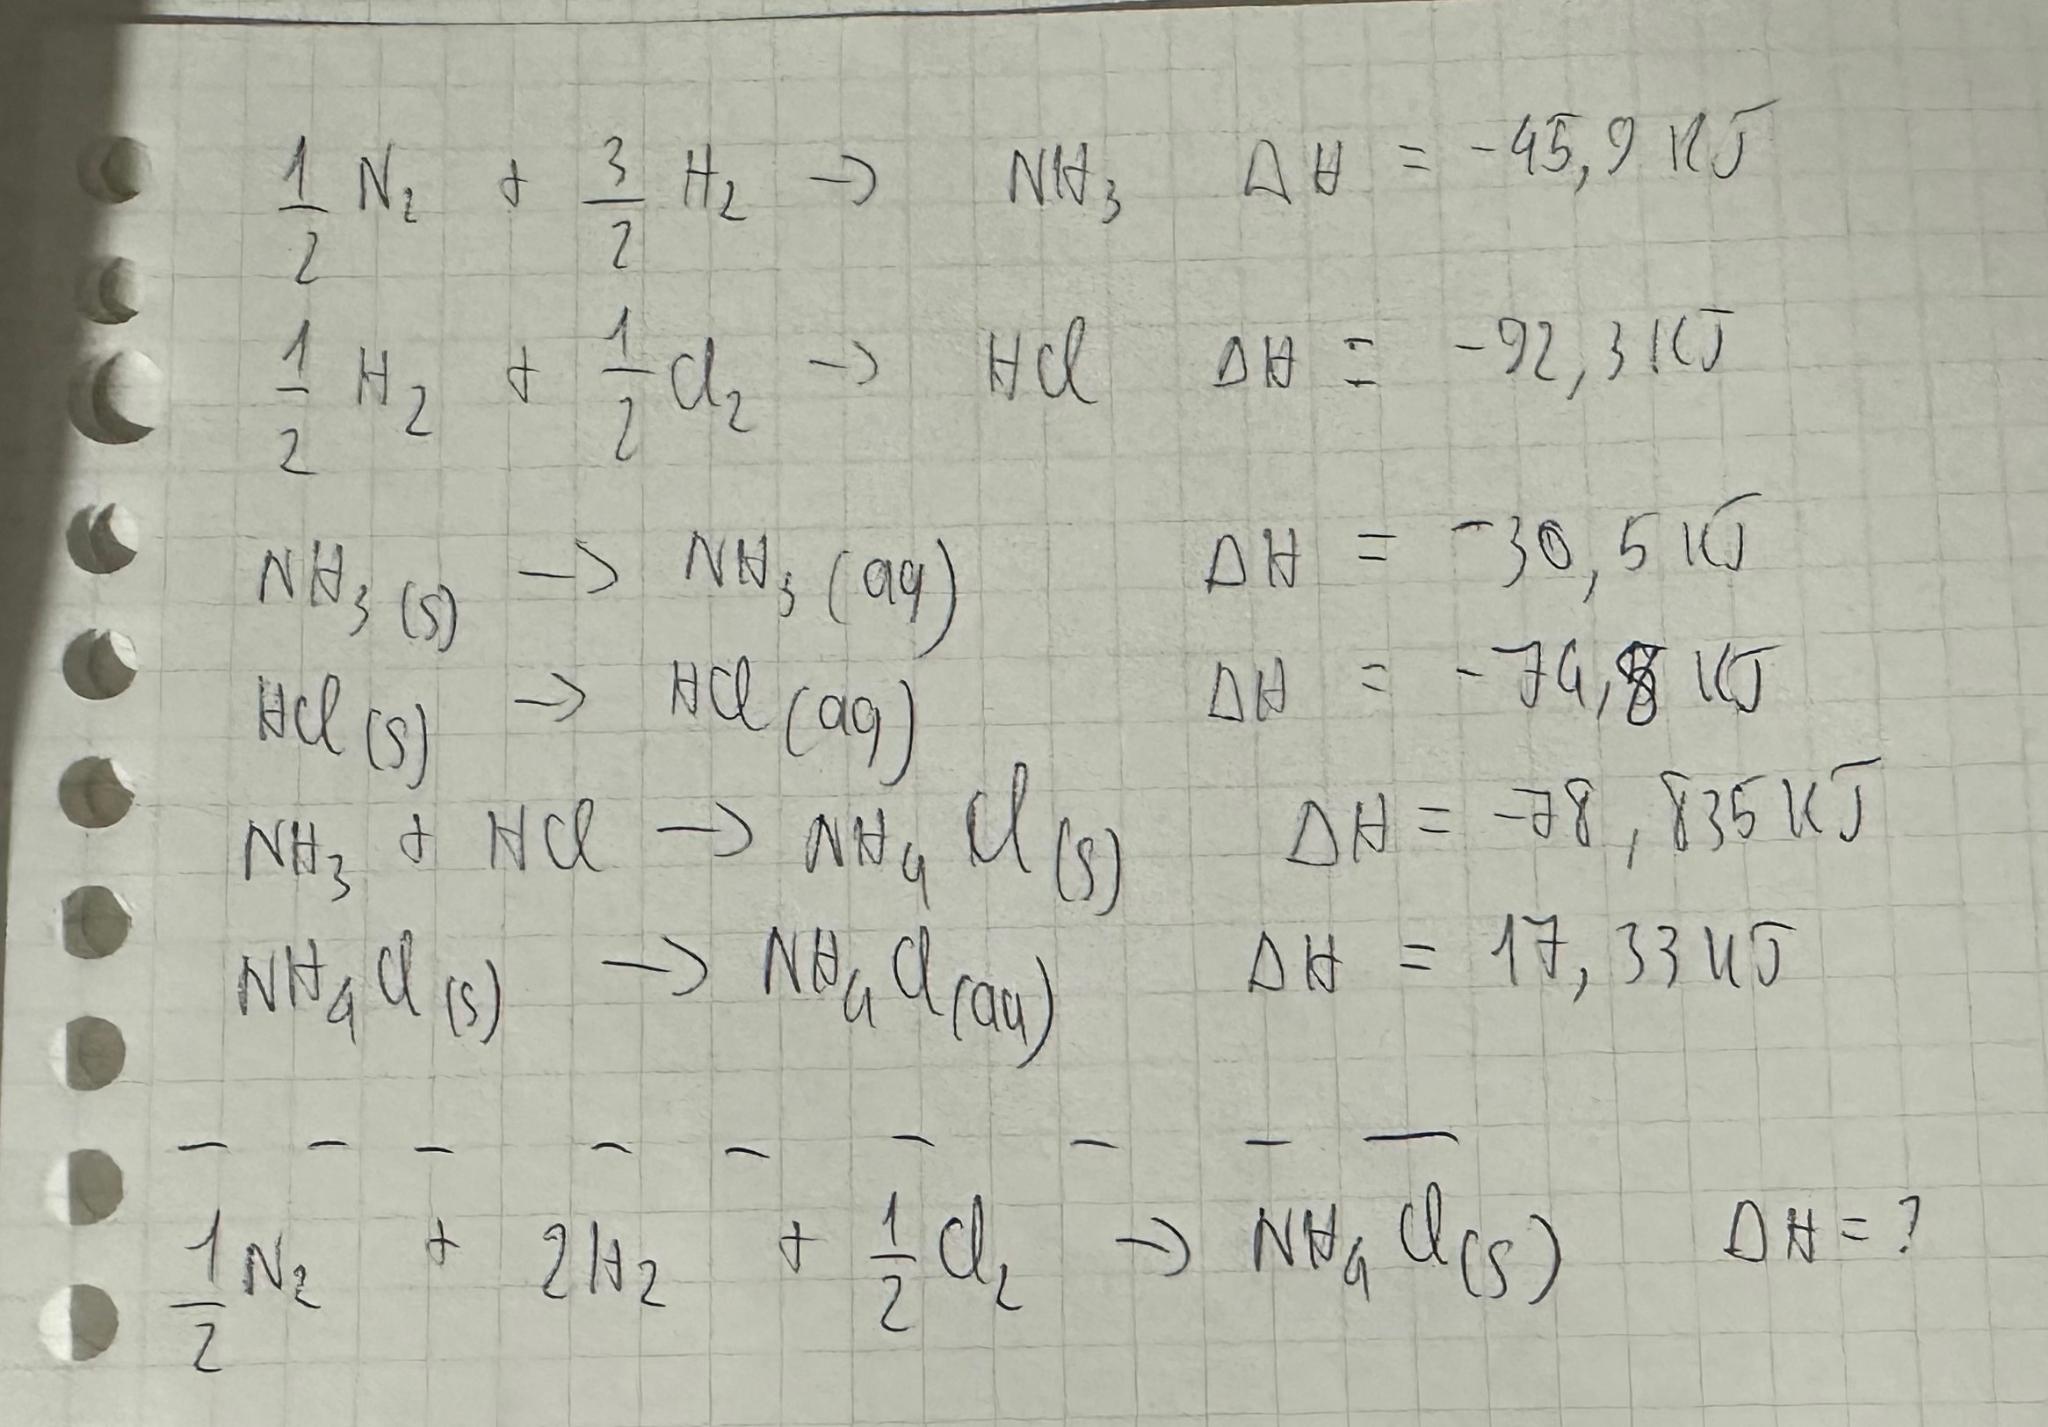 1/2 N₂ + 3/2 H₂ → NH₃ ΔH = -45,9 KJ
1/2 H₂ + 1/2 Cl₂ → HCl ΔH = -92,3 KJ
NH₃(s) → NH₃(aq) ΔH = -30,5 KJ
HCl(s) → HCl(aq) ΔH = -74,8 KJ
NH₃ + HCl → NH₄Cl(s) ΔH = -78,835 KJ
NH₄Cl(s) → NH₄Cl(aq) ΔH = 17,33 KJ
- - - - - - - - -
1/2 N₂ + 2H₂ + 1/2 Cl₂ → NH₄Cl(s) ΔH = ?